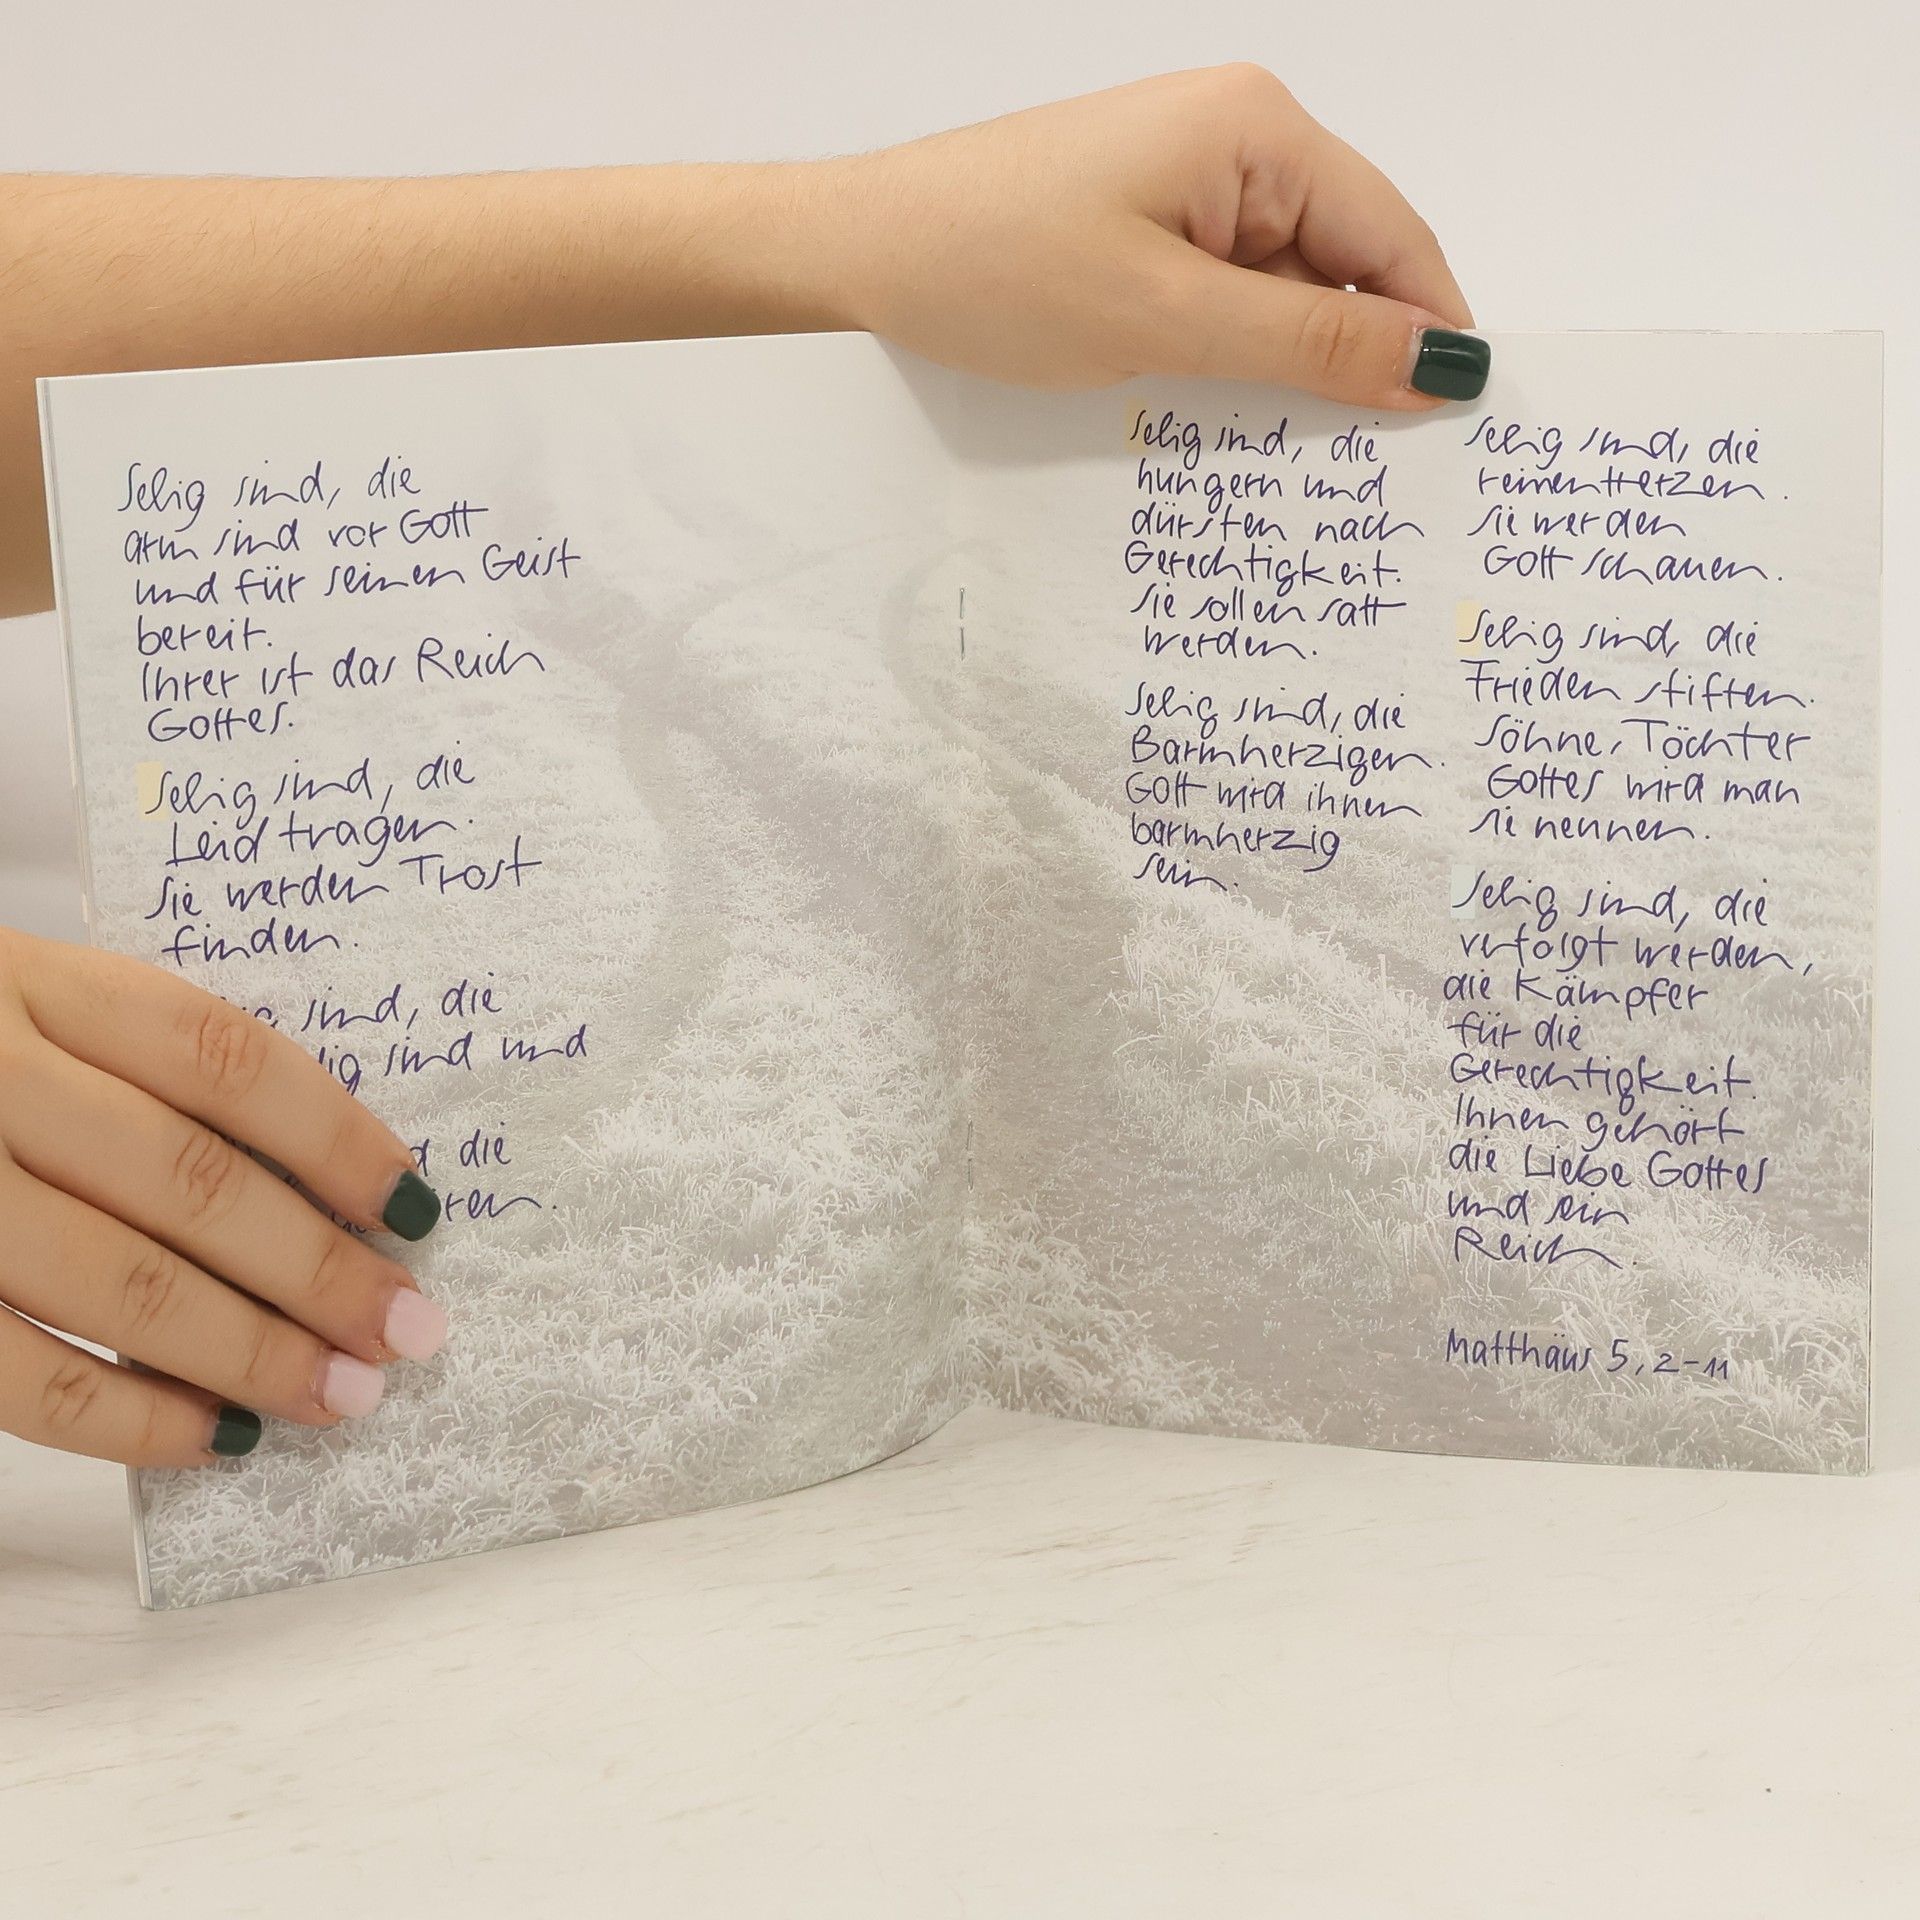 Selig sind, die
arm sind vor Gott
und für seinen Geist
bereit.
Ihrer ist das Reich
Gottes.
Selig sind, die
Leid tragen.
Sie werden Trost
finden.
sind, die
sind und
die
Selig sind, die
hungern und
dürsten nach
Gerechtigkeit.
Sie sollen satt
werden.
Selig sind, die
Barmherzigen.
Gott wird ihnen
barmherzig
sein.
Selig sind, die
reinen Herzen.
Sie werden
Gott schauen.
Selig sind, die
Frieden stiften.
Söhne, Töchter
Gottes wird man
sie nennen.
Selig sind, die
verfolgt werden,
die Kämpfer
für die
Gerechtigkeit.
Ihnen gehört
die Liebe Gottes
und sein
Reich.
Matthäus 5, 2-11